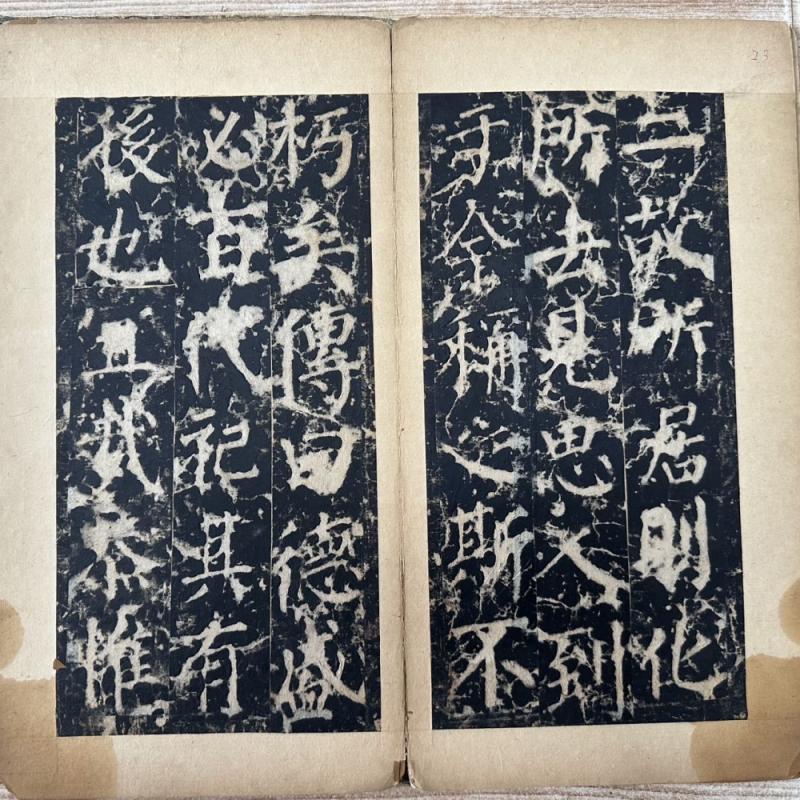 故所居則化
所去見思人到
于今稱之斯不
朽矣傳曰德盛
必百代祀其有
後也且我惟
23